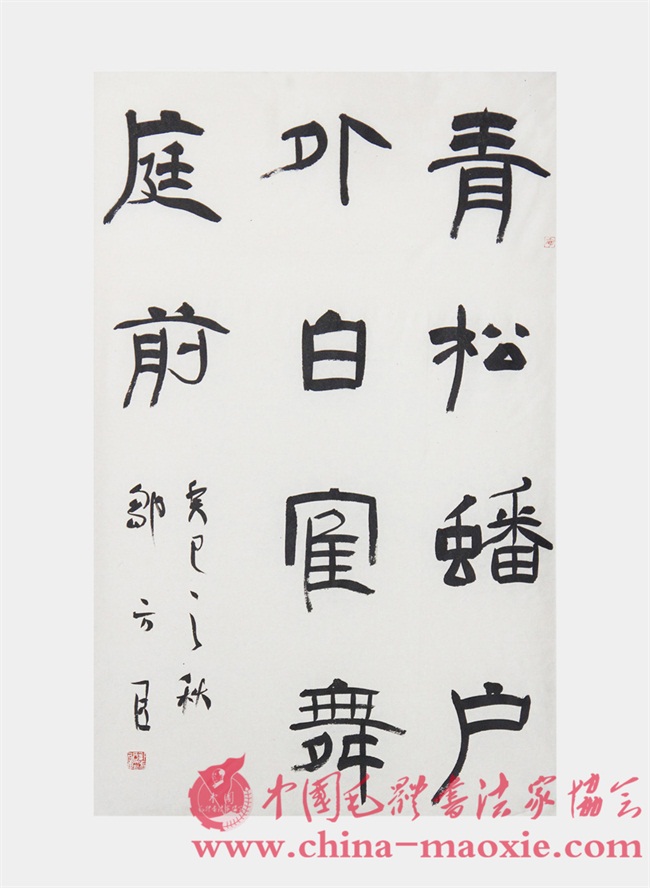 青松蟠户
外白隺舞
庭前
癸巳之秋
邹方
中國毛體書法家協会
www.china-maoxie.com